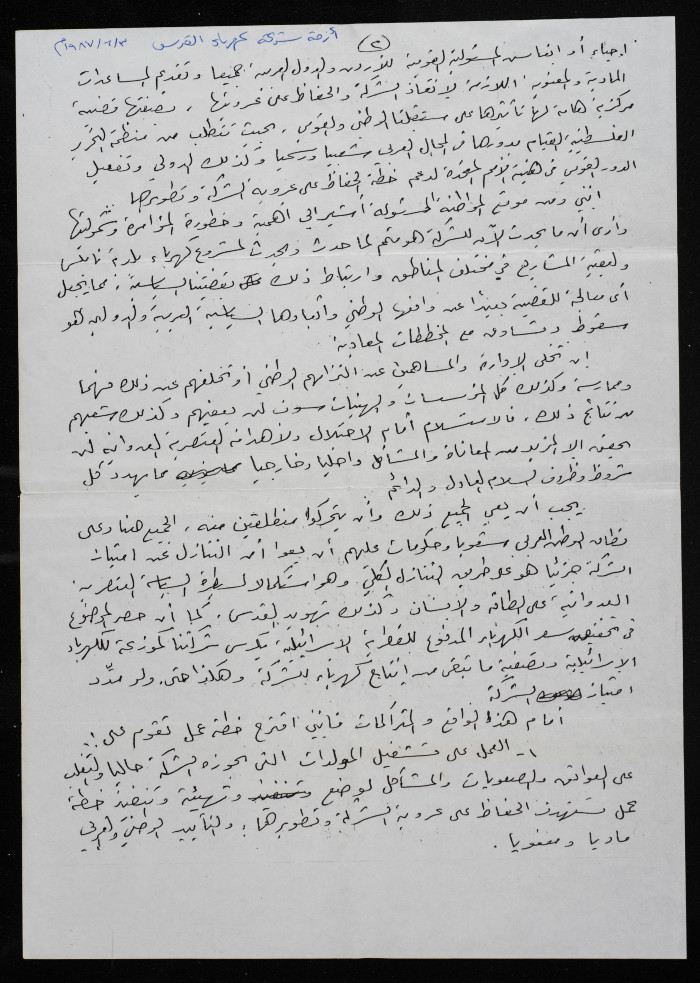 أزمة شركة كهرباء القدس ١٩٨٧/٦/٣م
(٢)
احياء أو انفاس المسئولية القومية للأردن والدول العربية جميعا وتقديم المساعدات
المادية والمعنوية اللازمة لإنقاذ الشركة والحفاظ على عروبتها ، بصفتها قضية
مركزية هامة لها تأثيرها على مستقبلنا الوطني والقومي ، بحيث تتطلب من منظمة التحرير
الفلسطينية القيام بدورها في المجال العربي شعبيا ورسميا وكذلك الدولي وتفعيل
الدور القومي في هيئة الأمم المتحدة لدعم خطة الحفاظ على عروبة الشركة وتطويرها .
انني ومن موقع المواطنة المسئولة أشير إلى أهمية وخطورة المؤامرة وشموليتها
وأرى أن ما يحدث الآن للشركة هو متمم لما حدث ويحدث لمشروع كهرباء بلدية نابلس
ولبقية المشاريع في مختلف المناطق وارتباط ذلك بقضيتنا السياسية ، مما يجعل
أي معالجة للقضية بعيدا عن واقعها الوطني وأبعادها السياسية العربية والدولية هو
سقوط وتساوق مع المخططات المعادية .
إن تخلي الإدارة والمساهمين عن التزامهم الوطني أو تخلفهم عن ذلك فهما
وممارسة وكذلك كل المؤسسات والهيئات سوف لن يعفيهم وكذلك شعبهم
من نتائج ذلك ، فالاستسلام أمام الاحتلال ولأهدافه العنصرية العدوانية لن
يحقق إلا المزيد من المعاناة والمشاكل داخليا وخارجيا مما يهدد كل
شروط وظروف السلام العادل والدائم
يجب أن يعي الجميع ذلك وأن يتحركوا منطلقين منه ، الجميع هنا وعلى
نطاق الوطن العربي شعوبا وحكومات عليهم أن يعوا أن التنازل عن امتياز
الشركة جزئيا هو على طريق التنازل الكلي وهو استكمالا لسيطرة السياسة العنصرية
العدوانية على الطاقة والانسان وكذلك تهويد القدس ، كما أن حصر الموضوع
في تخفيض سعر الكهرباء المدفوع للقطرية الاسرائيلية يكرس شركتنا كموزعة للكهرباء
الاسرائيلية وتصفية ما تبقى من إنتاج كهرباء للشركة وهكذا حتى ولو مدّد
امتياز الشركة
أمام هذا الواقع والمتراكمات فإنني اقترح خطة عمل تقوم على :
١ - العمل على تشغيل المولدات التي بحوزة الشركة حاليا والتغلب
على العوائق والصعوبات والمشاكل لوضع وتهيئة وتنفيذ خطة
عمل تستهدف الحفاظ على عروبة الشركة وتطويرها ، والتأييد الوطني والعربي
ماديا ومعنويا .